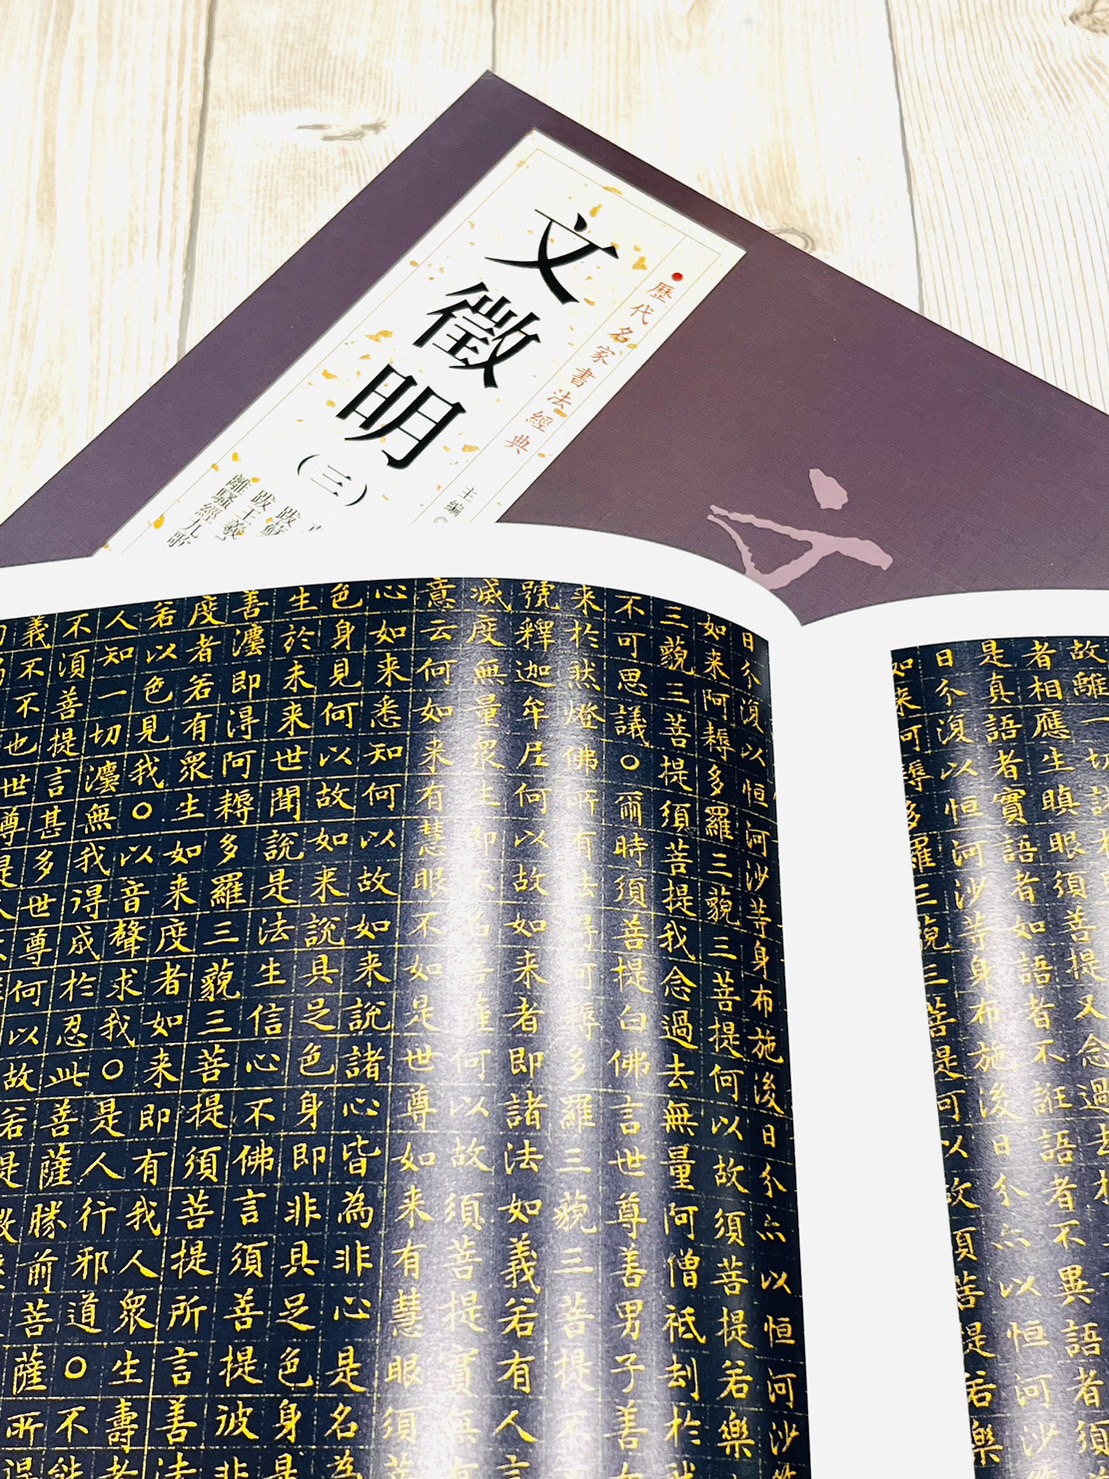 歷代名家書法經典
文徵明
(三)
主編
跋王羲
離騷經九歌
故離一切
者相應生瞋眼須菩提又念過去
是真語者實語者如語者不誑語者不異語者須
日分復以恒河沙等身布施後日分亦以恒河沙
如来阿耨多羅三藐三菩提何以故須菩提若樂
日分復以恒河沙等身布施後日分亦以恒河沙
如来阿耨多羅三藐三菩提何以故須菩提若樂
三藐三菩提須菩提我念過去無量阿僧祇刦於
不可思議○爾時須菩提白佛言世尊善男子善
来於然燈佛所有法得阿耨多羅三藐三菩提不
號釋迦牟尼何以故如来者即諸法如義若有人言
滅度無量眾生即不名菩薩何以故須菩提實无有
意云何如来有慧眼不如是世尊如来有慧眼須菩
心如来悉知何以故如来說諸心皆為非心是名為
色身見何以故如来說具足色身即非具足色身是
生於未来世聞說是法生信心不佛言須菩提彼非
善瀍即淂阿耨多羅三藐三菩提須菩提所言善法
度者若有眾生如来度者如来即有我人眾生壽者
若以色見我○以音聲求我○是人行邪道○不能
人知一切瀍無我得成於忍此菩薩勝前菩薩所得
不須菩提言甚多世尊何以故若
義不不也世尊是